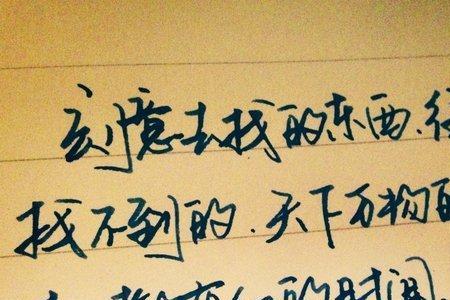 刻意去找的东西,往
找不到的.天下万物的
的时间